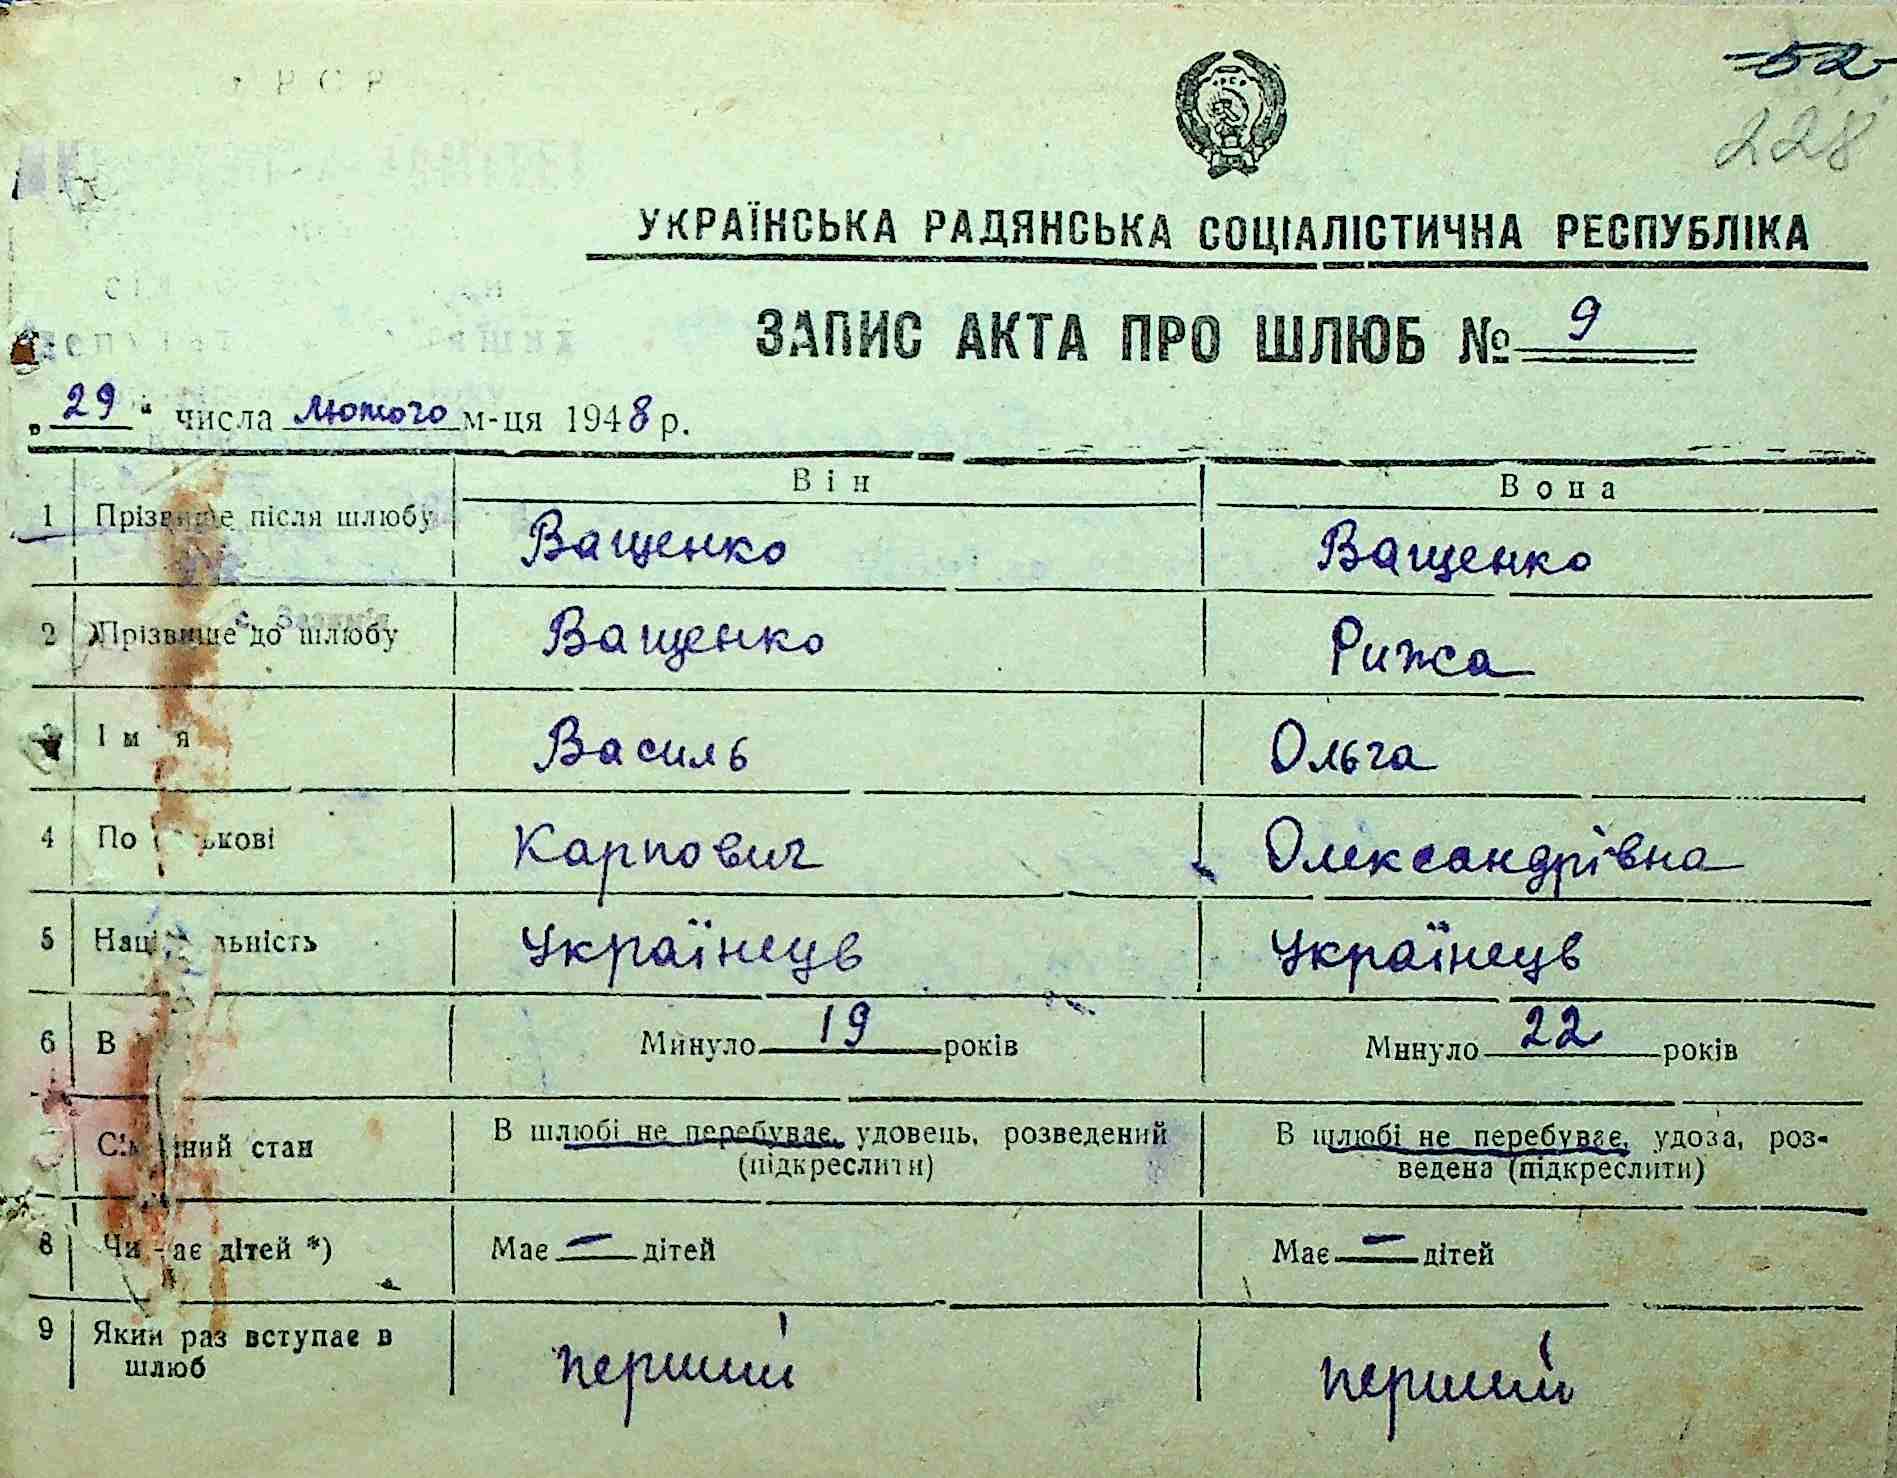 52
228
УКРАЇНСЬКА РАДЯНСЬКА СОЦІАЛІСТИЧНА РЕСПУБЛІКА
ЗАПИС АКТА ПРО ШЛЮБ № 9
„29“ числа лютого м-ця 1948 р.
Він Вона
1 Прізвище після шлюбу Ващенко Ващенко
2 Прізвище до шлюбу Ващенко Рижа
3 Ім'я Василь Ольга
4 По кові Карпович Олександрівна
5 Національність Українець Українець
6 В Минуло 19 років Минуло 22 років
Сімейний стан В шлюбі не перебуває, удовець, розведений (підкреслити) В шлюбі не перебуває, удова, розведена (підкреслити)
8 Чи має дітей *) Має — дітей Має — дітей
9 Який раз вступає в шлюб перший перший